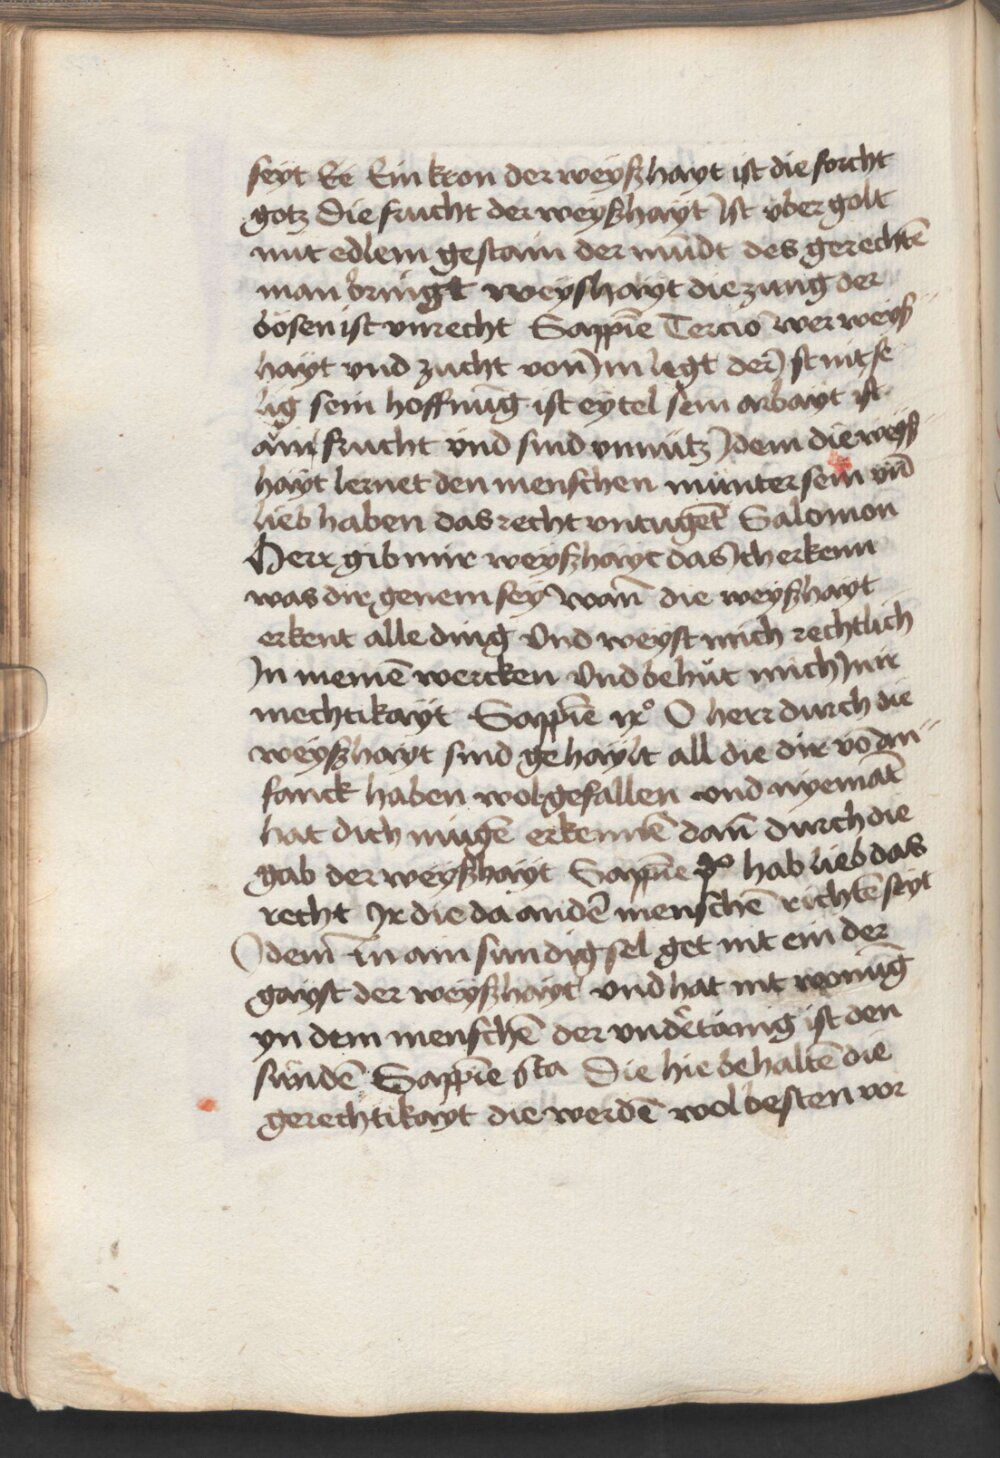 seyt Ee Ein kron der weyßhayt ist die forcht
gotz Die frucht der weyßhayt Ist vber golt
mit edlem gestain der mūdt des gerechtē
man bringt weyshayt die zung der
bösen ist vnrecht Sappīe Tercio wer weyß
hayt vnd zucht von Im legt der Ist nit se
lig sein hoffnūg ist eytel sein arbayt ist
ain frucht vnd sind vnnutz Idem die weyß
hayt lernet den menschen munter sein vn̄
lieb haben das recht vntugēt Salomon
Herr gib mir weyßhayt das Ich erkenn
was dir genem sey wan̄ die weyßhayt
erkent alle ding Vnd weyst mich rechtlich
In meinē wercken Vnd behut mich In ir
mechtikayt Sappīe ix° O herr durch die
weyßhayt sind gehaylt all die dir vō an
fanck haben wolgefallen vnd nyemāt
hat dich mugē erkennē dan̄ durch die
gab der weyßhayt Sappīe p° hab lieb das
recht Ir die da andē menschē richtē seyt
Idem in ain sundig sel get nit ein der
gayst der weyßhayt vnd hat nit wonūg
yn dem menschē der vndētänig ist den
sundē Sappīe 6ta Die hie behaltē die
gerechtikayt die werdē wol besten vor